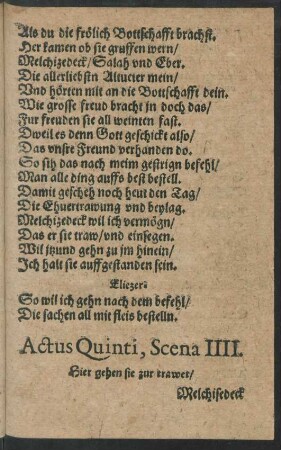 Als du die frölich Bottschafft brachst.
Her kamen ob sie gruffen wern/
Melchizedeck/ Salah vnd Eber.
Die allerliebsten Altueter mein/
Vnd hörten mit an die Bottschafft dein.
Wie grosse freud bracht jn doch das/
Fur freuden sie all weinten fast.
Dweil es denn Gott geschickt also/
Das vnsre Freund verhanden do.
So sih das nach meim gestrign befehl/
Man alle ding auffs best bestell.
Damit gescheh noch heut den Tag/
Die Ehuertrawung vnd beylag.
Melchizedeck wil ich vermögn/
Das er sie traw/ vnd einsegen.
Wil jtzund gehn zu jm hinein/
Ich halt sie auffgestanden sein.
Eliezer.
So wil ich gehn nach dem befehl/
Die sachen all mit fleis bestelln.
Actus Quinti, Scena IIII.
Hier gehen sie zur trawet/
Melchisedeck